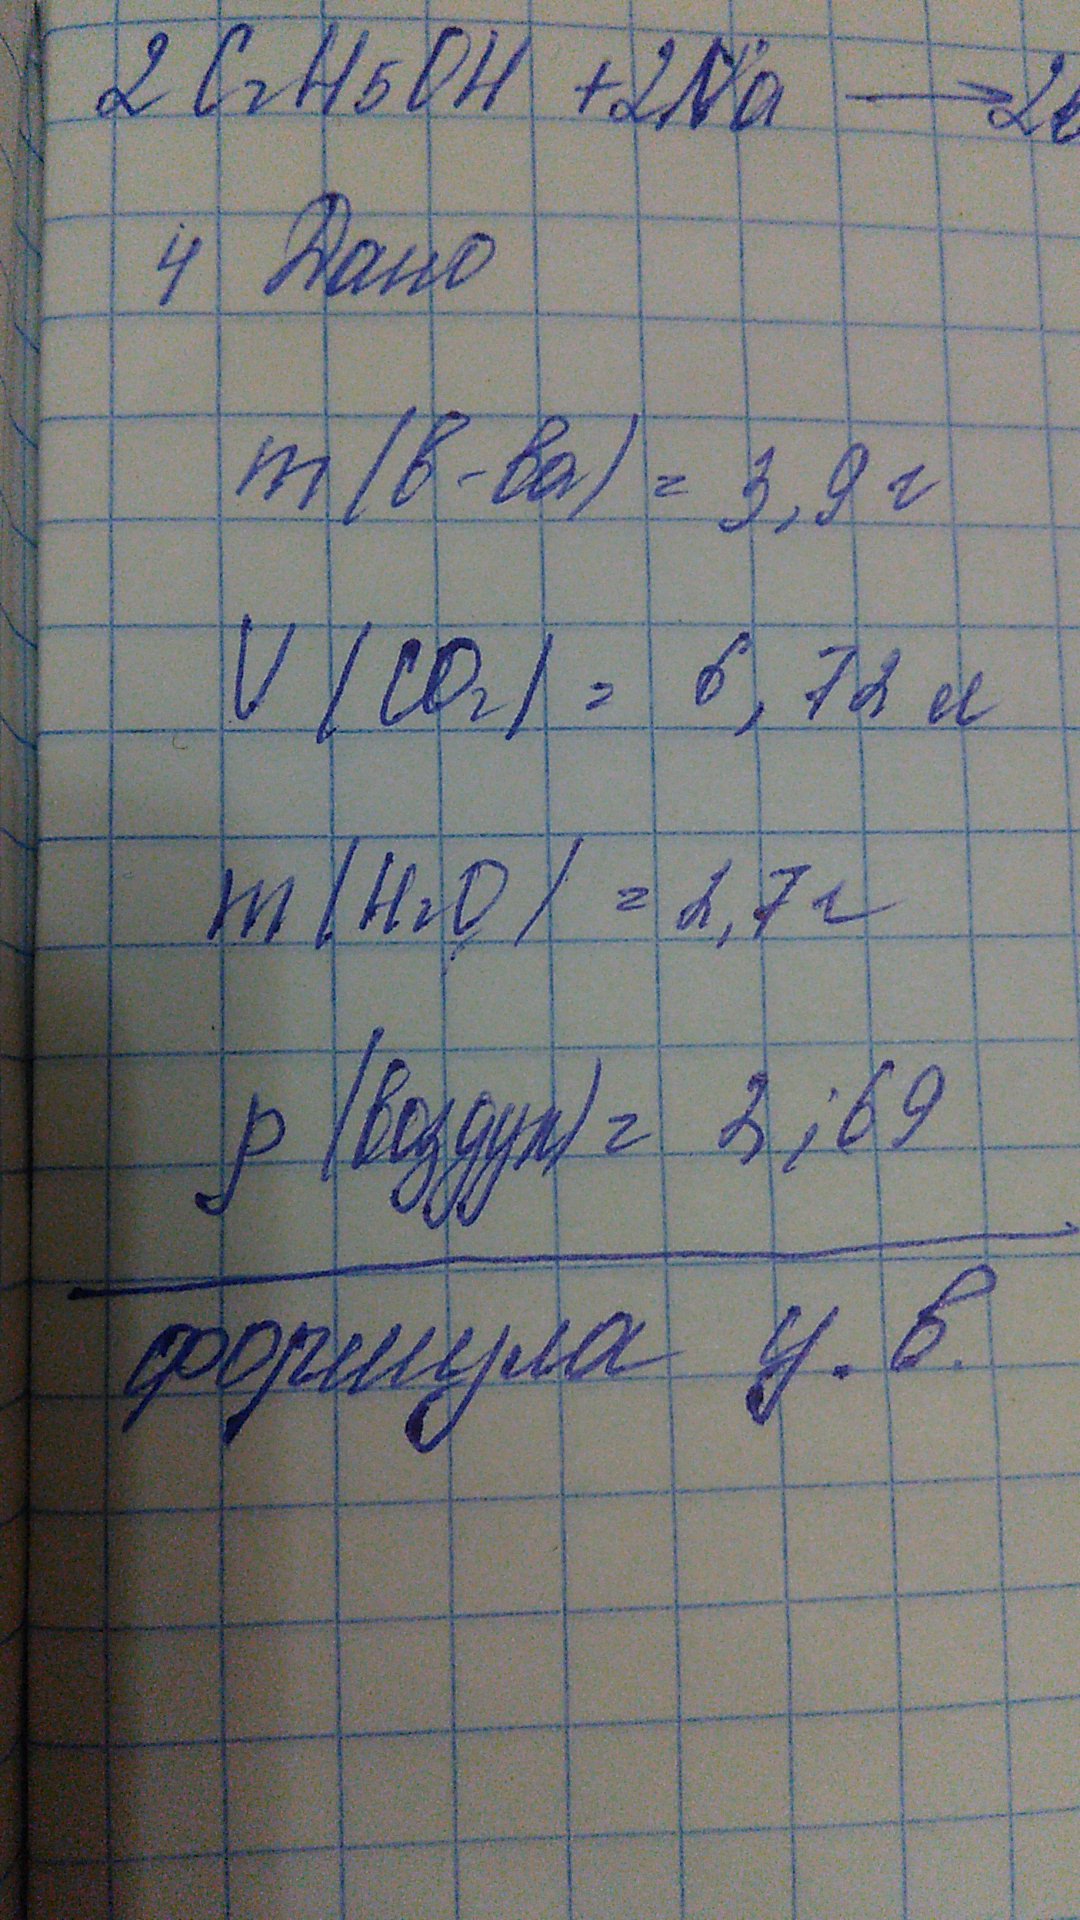 2C₂H₅OH + 2Na → 2
4 Дано
m(в-ва) = 3,9 г
V(CO₂) = 6,72 л
m(H₂O) = 2,7 г
р(воздух) = 2,69
формула у.в.